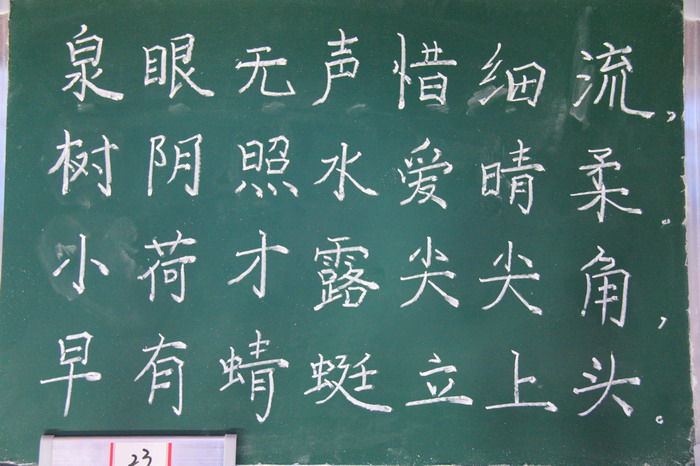 泉眼无声惜细流，
树阴照水爱晴柔。
小荷才露尖尖角，
早有蜻蜓立上头。
23